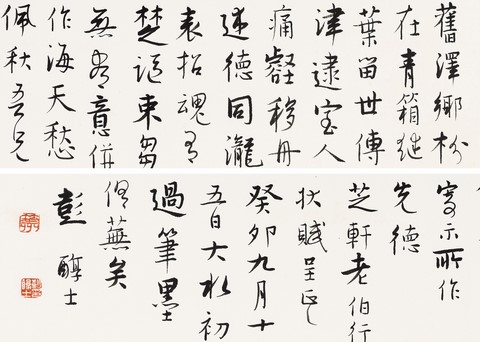 舊澤鄉枌
在青箱継
葉留世傳
津逮室人
痛壑移舟
述德同瀧
表招魂有
楚謳束芻
無意併
作海天愁
佩秋吾兄
寄示所作
先德
芝軒老伯行
狀賦呈正
癸卯九月十
五日大水初
過筆墨
蕪矣
彭醇士